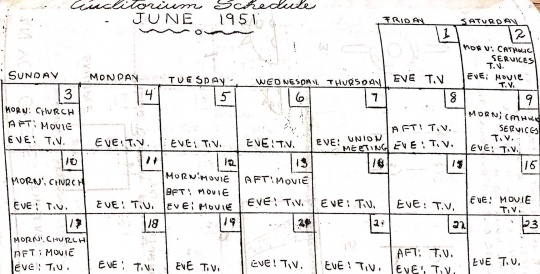 Auditorium Schedule
JUNE 1951
FRIDAY SATURDAY
1 2
MORN: CATHLIC
SERVICES
T.V.
EVE T.V EVE: MOVIE
T.V.
SUNDAY MONDAY TUESDAY WEDNESDAY THURSDAY
3 4 5 6 7 8 9
MORN: CHURCH MORN; CATHLIC
AFT: MOVIE AFT: T.V. SERVICES
T.V.
EVE: T.V. EVE: T.V. EVE: T.V. EVE: T.V. EVE: UNION MEETING EVE: T.V. EVE: T.V.
10 11 12 13 14 15 16
MORN: CHURCH MORN: MOVIE AFT: MOVIE
AFT: MOVIE
EVE: T.V. EVE: T.V. EVE: MOVIE EVE: T.V. EVE: MOVIE
T.V.
17 18 19 20 21 22 23
MORN: CHURCH
AFT: MOVIE AFT: T.V.
EVE: T.V. EVE: T.V. EVE T.V. EVE: T.V. EVE: T.V. EVE: T.V. EVE: T.V.